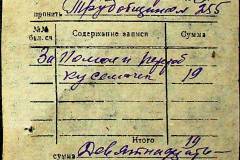 принять Трубовщиком 255
№№ бал. сч. Содержание записи Сумма
За Помол и перероб
кусемечки 19
Итого 19
сумма Девятнадцать